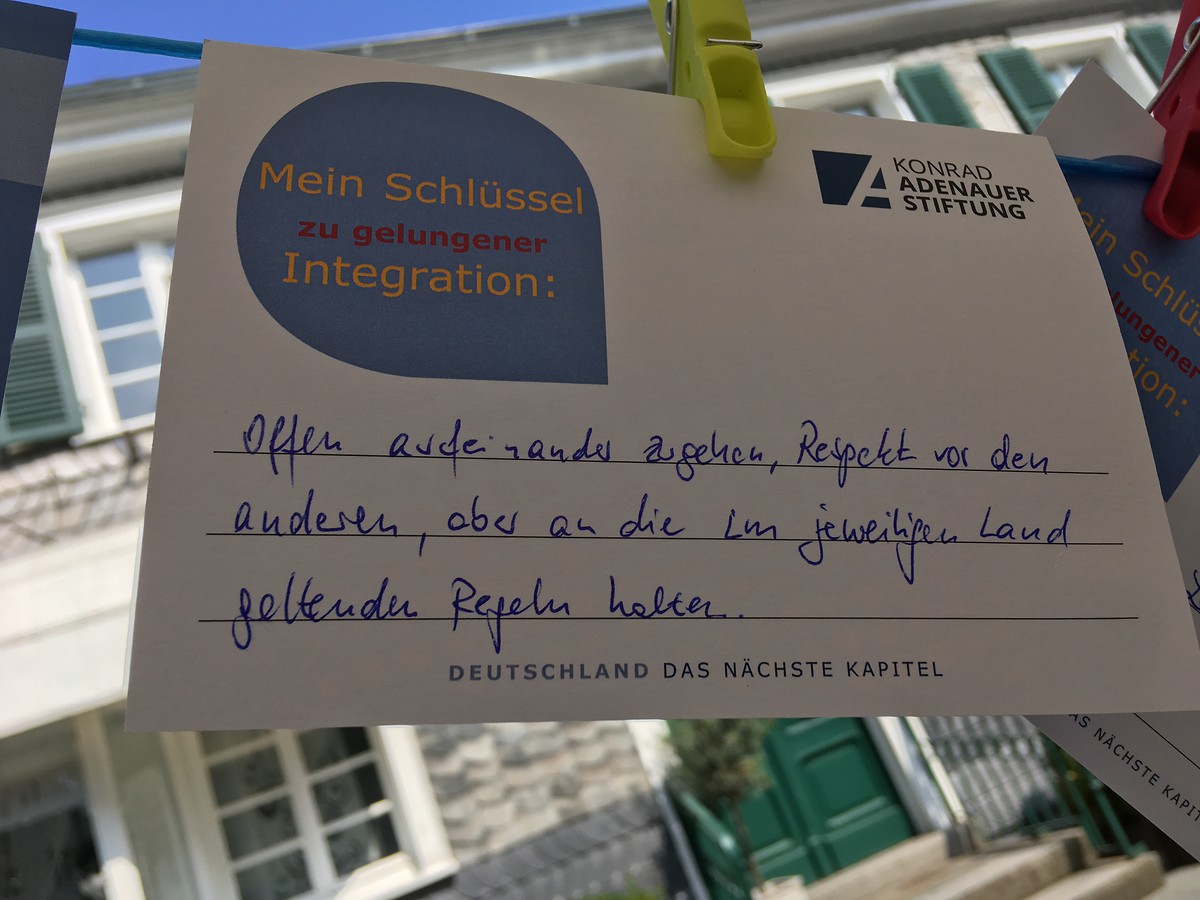 Mein Schlüssel
zu gelungener
Integration:
KONRAD
ADENAUER
STIFTUNG
Offen aufeinander zugehen, Respekt vor den
anderen, aber an die im jeweiligen Land
geltenden Regeln halten.
DEUTSCHLAND DAS NÄCHSTE KAPITEL
ein Schlüs
lungener
tion:
AS NÄCHSTE KAPIT